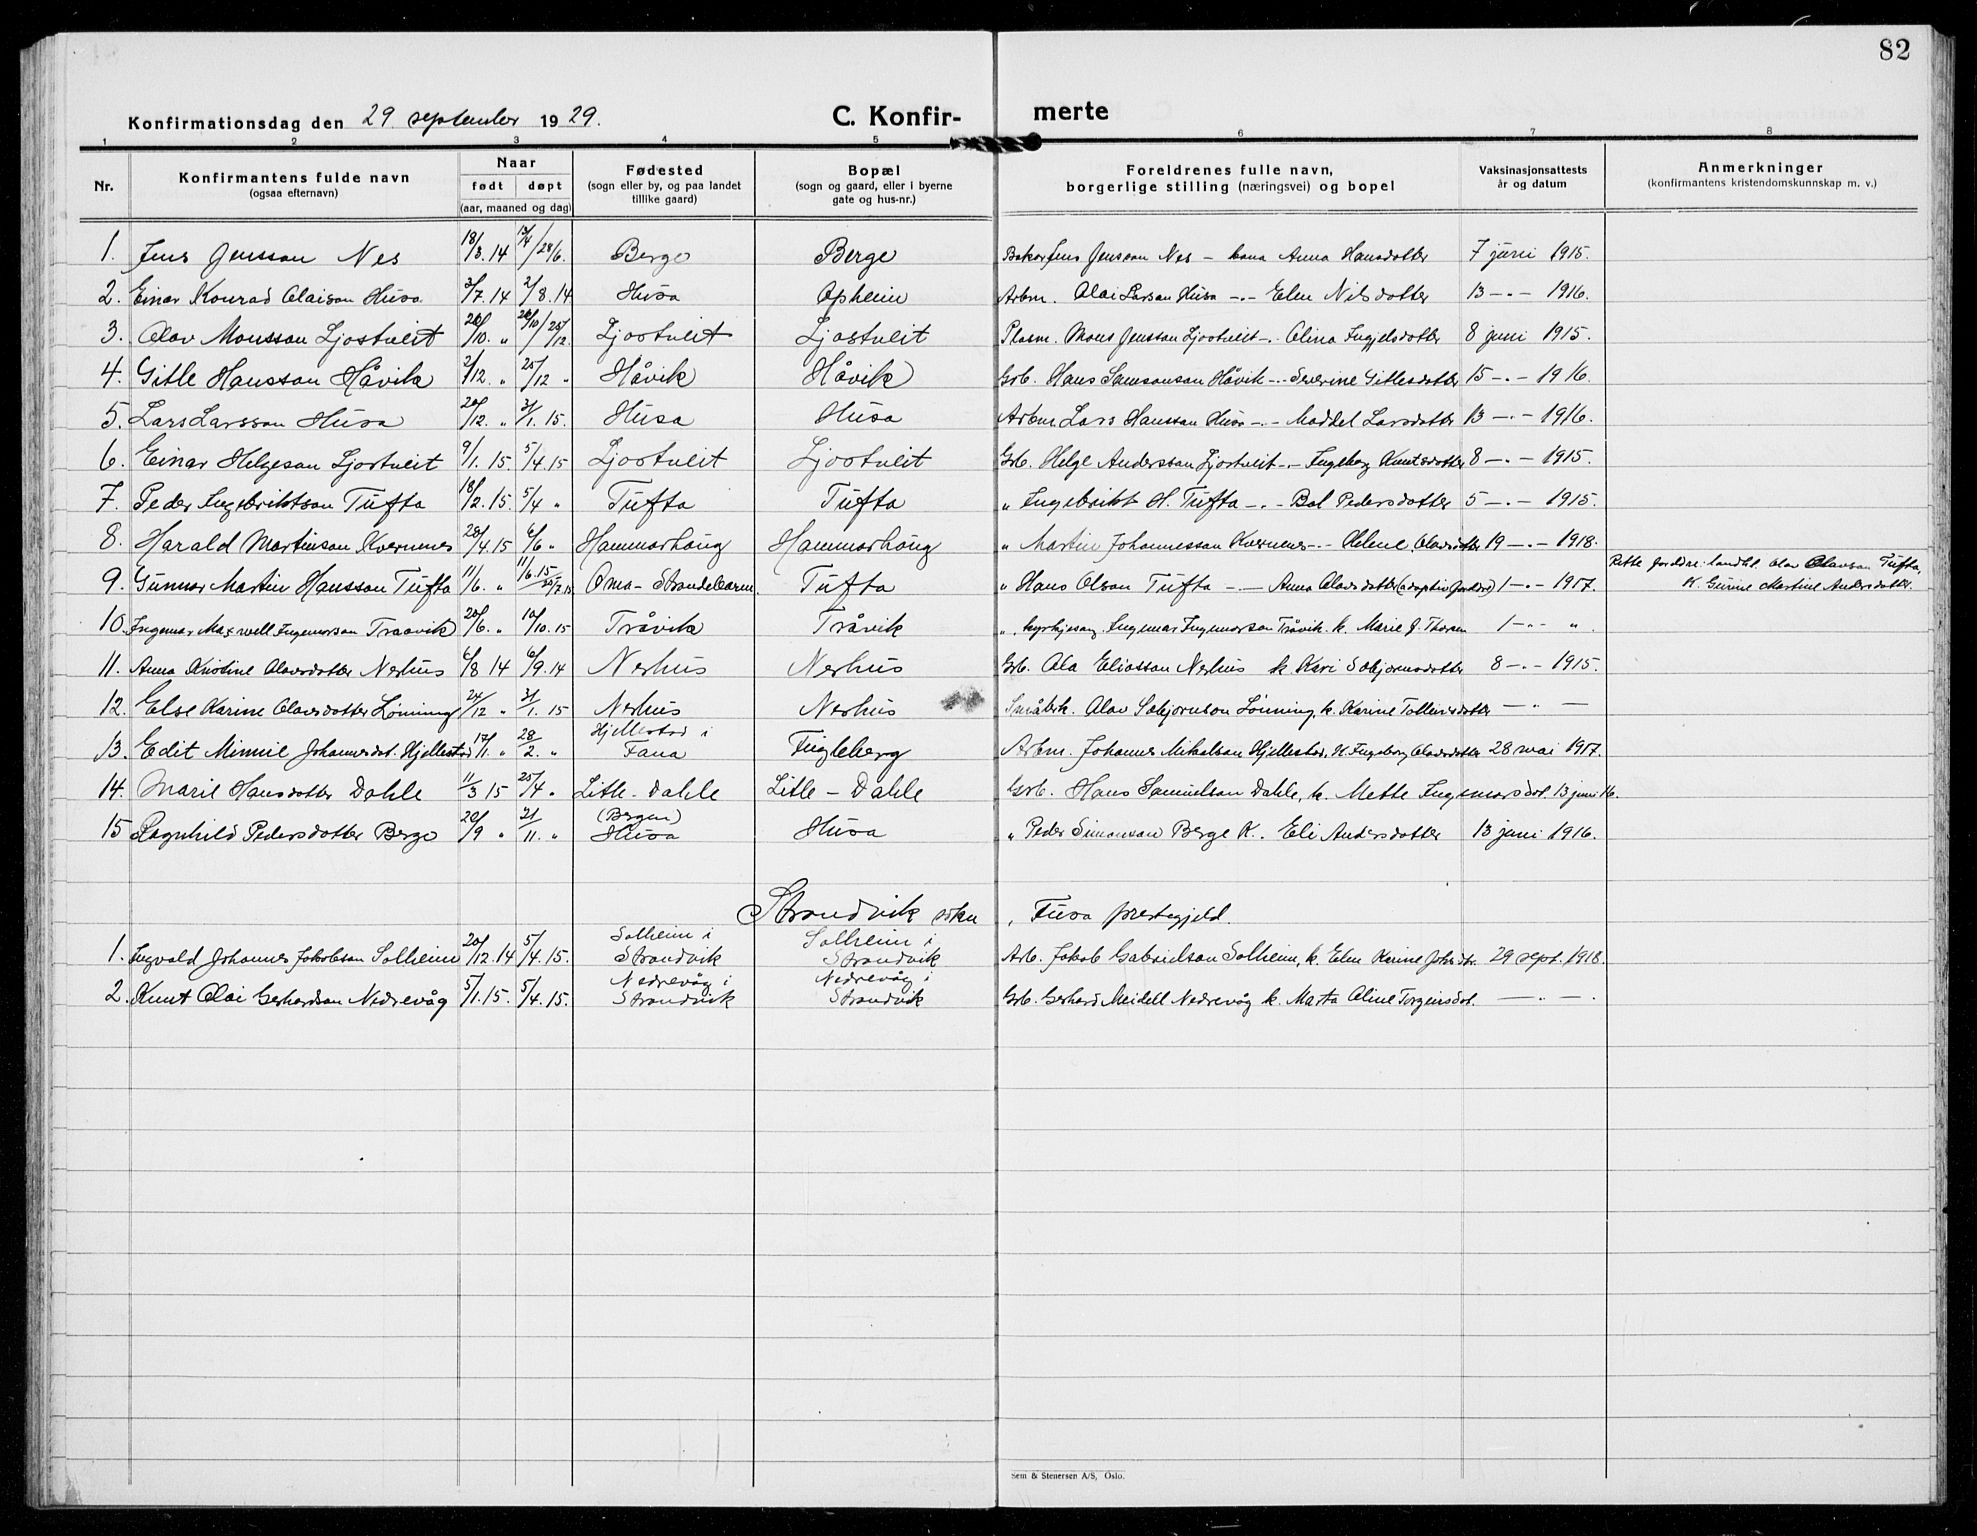 82
Konfirmationsdag den 29. september 1929. C. Konfir- merte
1 2 3 4 5 6 7 8
Nr. Konfirmantens fulde navn (ogsaa efternavn) Naar født døpt (aar, maaned og dag) Fødested (sogn eller by, og paa landet tillike gaard) Bopæl (sogn og gaard, eller i byerne gate og hus-nr.) Foreldrenes fulle navn, borgerlige stilling (næringsvei) og bopel Vaksinasjonsattests år og datum Anmerkninger (konfirmantens kristendomskunnskap m. v.)
1. Jens Jensson Nes 18/3.14 13/4/28/6. Berge Berge Baker Jens Jensson Nes – kona Anna Hansdotter 7 juni 1915.
2. Einar Konrad Olaison Husa 3/7.14 2/8.14 Husa Opheim Arbm. Olai Larsson Husa -.- Elen Nilsdotter 13 -.- 1916.
3. Olav Monsson Ljostveit 26/10. " 26/10/25/12. Ljostveit Ljostveit Plasm. Mons Jensson Ljostveit -. Olina Ingjelsdotter 8 juni 1915.
4. Gitle Hansson Håvik 2/12. " 25/12 " Håvik Håvik Grb. Hans Samsonson Håvik -.- Severine Gitlesdotter 15 -.- 1916.
5. Lars Larsson Husa 20/12. " 3/1.15. Husa Husa Arbm. Lars Hansson Husa -.- Maddel Larsdotter 13 -.- 1916.
6. Einar Helgeson Ljostveit 9/1.15. 5/4.15 Ljostveit Ljostveit Grb. Helge Andersson Ljostveit -.- Ingeborg Knutsdotter 8 -.- 1915.
7. Peder Ingebriktson Tufta 18/2.15. 5/4 " Tufta Tufta " Ingebrikt H. Tufta -.- Bol Pedersdotter 5 -.- 1915.
8. Harald Martinson Kvernenes 28/4.15 6/6 " Hammarhaug Hammarhaug " Martin Johannesson Kvernenes -.- Helene Olavsdotter 19 -.- 1918.
9. Gunnar Martin Hansson Tufta 11/6. " 11/6.15/29/7.15 Oma - Strandebarm. Tufta " Hans Olson Tufta -.- Anna Olavsdotter (adoptivforeldre) 1 -.- 1917. Rette foreldre: Landh. Olav Olavson Tufta, K. Gurine Martine Andersdotter.
10. Ingemar Maxwell Ingemarson Traavik 20/6. " 10/10.15 Tråvik Tråvik " kyrkjesong. Ingemar Ingemarson Tråvik. k. Marie J. Thorsen 1 -.- " .
11. Anna Kristine Olavsdotter Nerhus 6/8 14 6/9.14 Nerhus Nerhus Grb. Ola Eliasson Nerhus k. Kari Sebjørnsdotter 8 -.- 1915.
12. Else Karine Olavsdotter Lønning 24/12 " 31/1.15 Nerhus Nerhus Småbrk. Olav Sebjørnson Lønning, k. Karine Tollevsdotter — " —
13. Edit Minnie Johannesdot. Hjellestad 17/1. " 28/2. " Hjellestad i Fana Fugleberg Arbm. Johannes Mikalson Hjellestad, k. Ingeborg Olavsdotter 28 mai 1917.
14. Marie Hansdotter Dahle 11/3 15 25/4 " Litle-Dahle Litle-Dahle Grb. Hans Samuelson Dahle, k. Mette Ingemarsdot. 13 juni 16.
15 Ragnhild Pedersdotter Berge 20/9 " 21/11. " (Bergen) Husa Husa " Peder Simonson Berge K. Eli Andersdotter 13 juni 1916.
Strandvik sokn , Fusa prestegjeld.
1. Ingvald Johannes Jakobson Solheim 20/12.14 5/4.15. Solheim i Strandvik Solheim i Strandvik Arb. Jakob Gabrielson Solheim, k. Elen Karine Johsdtr. 29 sept. 1918.
2. Knut Olai Gerhardson Nedrevåg 5/1.15. 5/4.15. Nedrevåg i Strandvik Nedrevåg i Strandvik Grb. Gerhard Meidell Nedrevåg k. Marta Oline Torgeirsdot. — " —.
Sem & Stenersen A/S, Oslo.